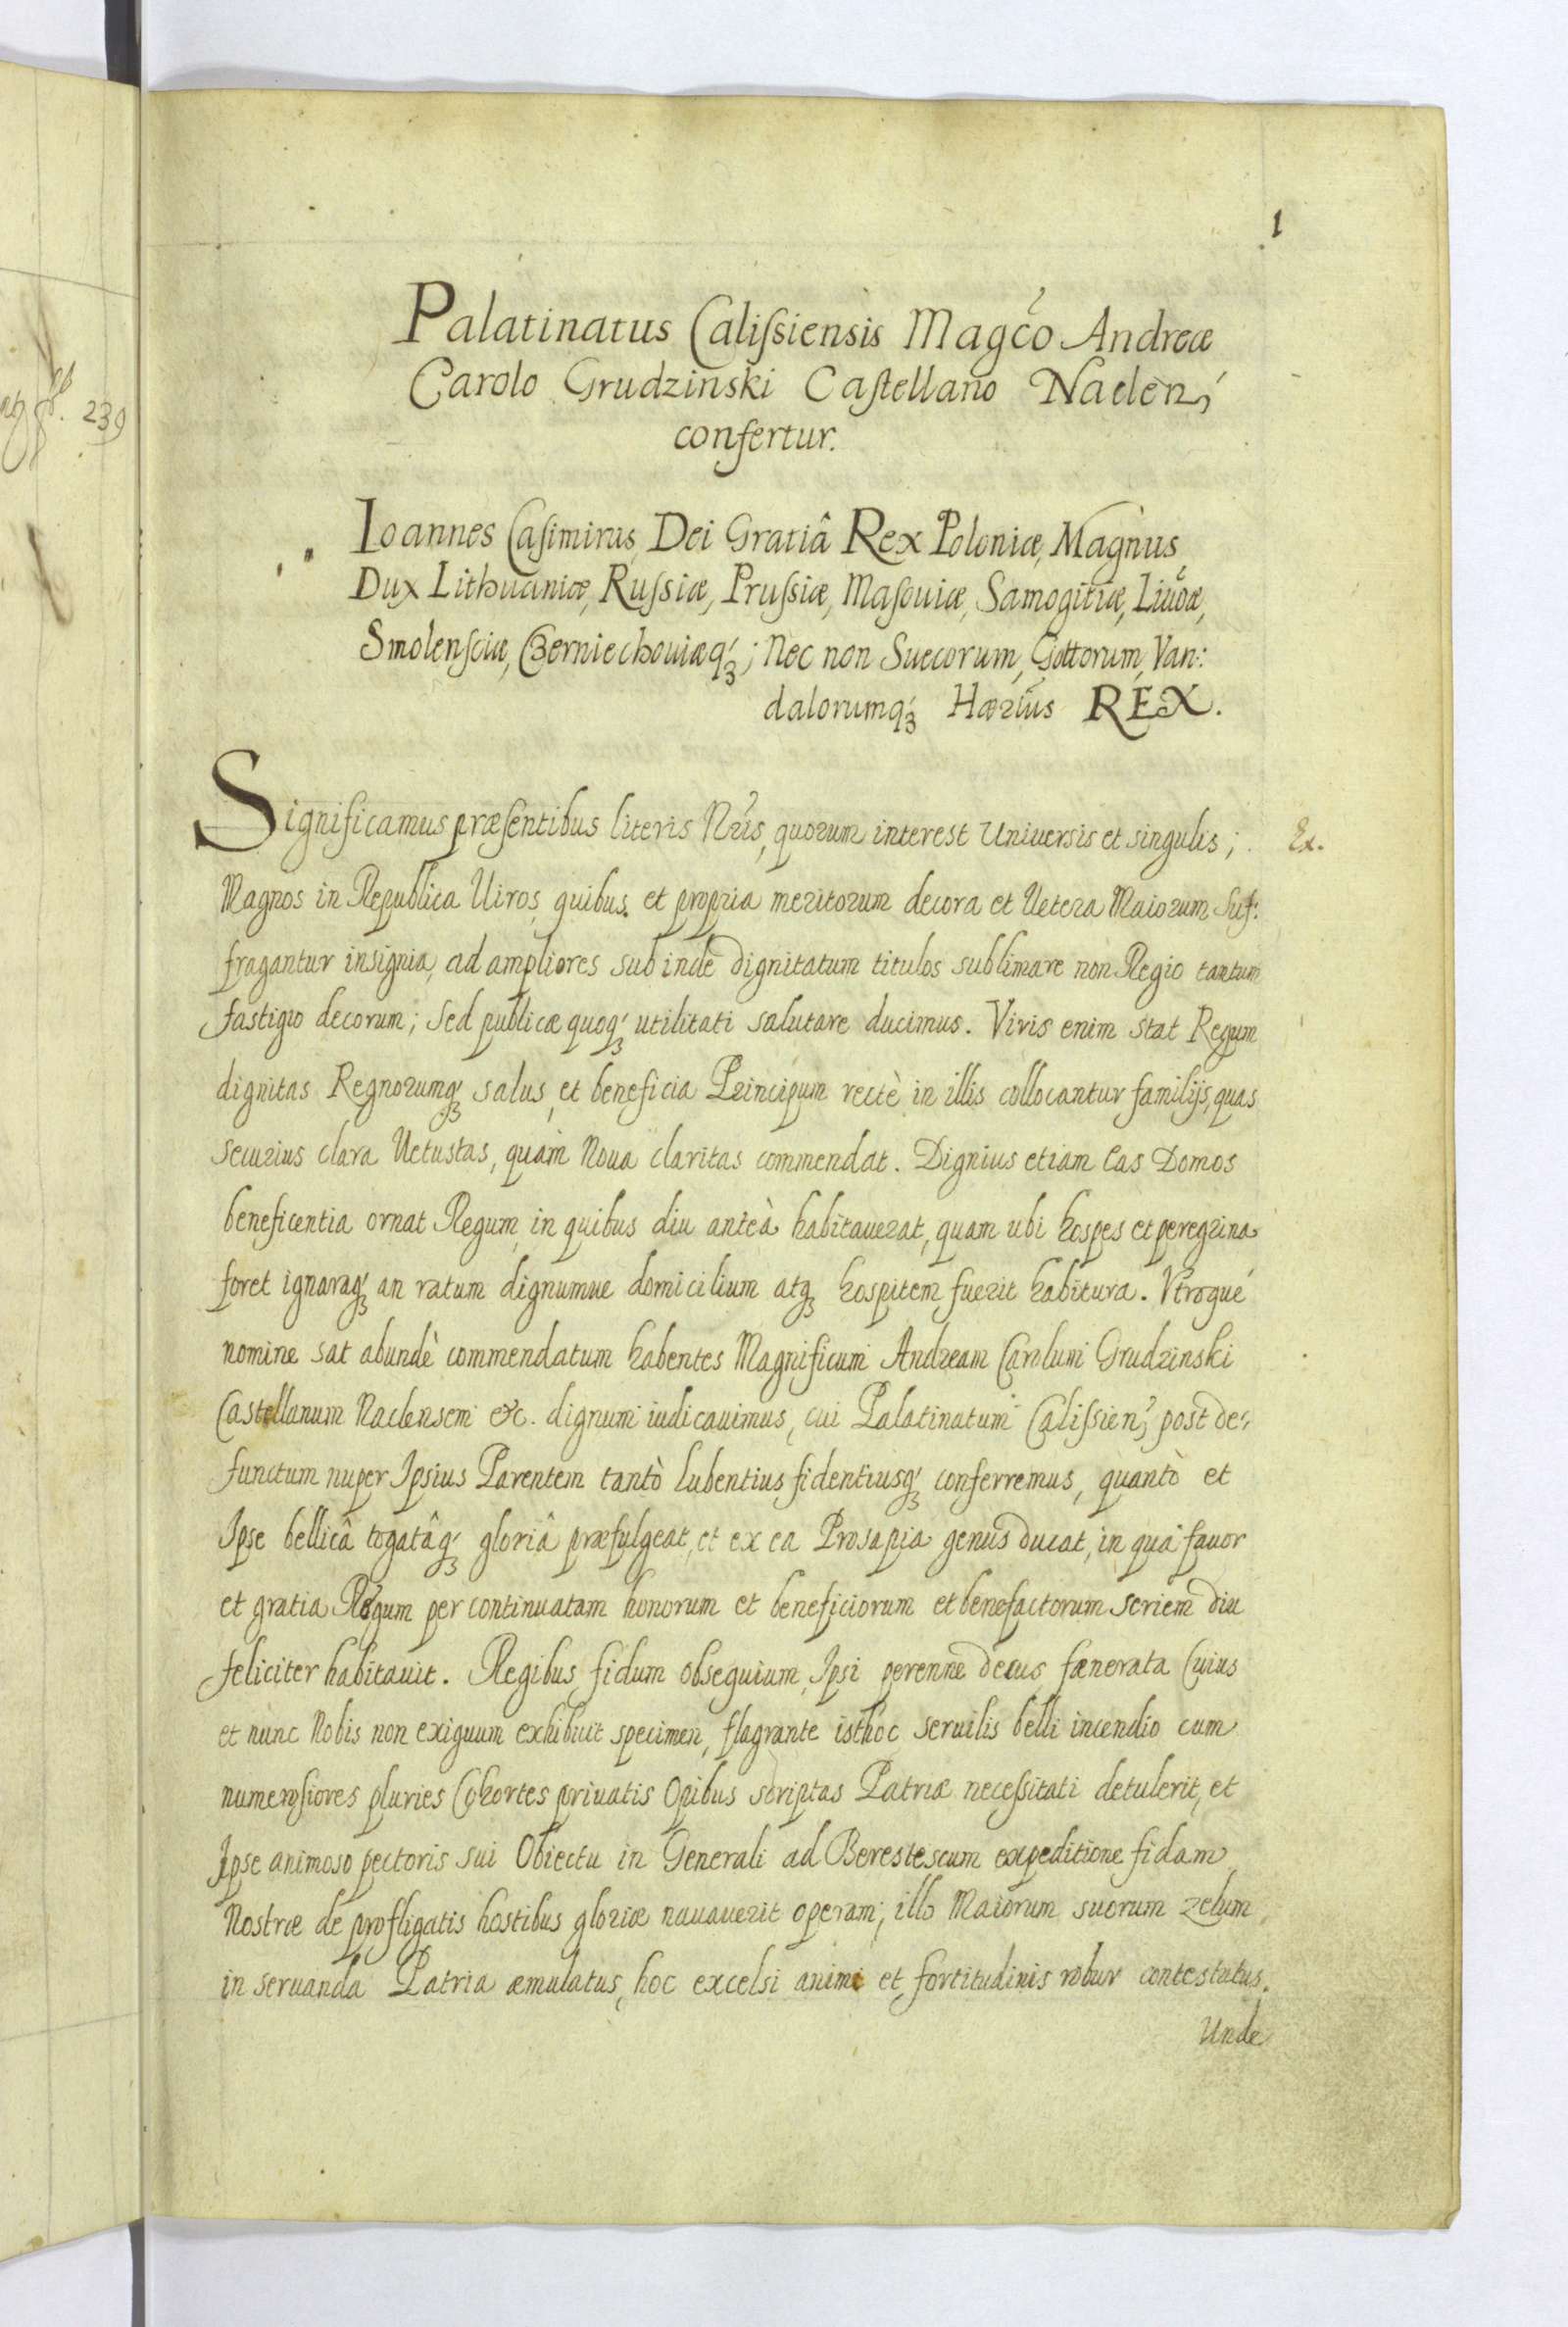 1
239
Palatinatus Calissiensis Magco Andreæ
Carolo Grudzinski Castellano Naclen,
confertur.
Ioannes Casimirus Dei Gratiâ Rex Poloniæ, Magnus
Dux Lithuaniæ, Russiæ, Prussiæ, Masouiæ, Samogitiæ, Liuoæ,
Smolensciæ, Czerniechouiæq́ꝫ; Nec non Suecorum, Gottorum, Van:
dalorumq́ꝫ Hærius REX.
Significamus præsentibus literis Nris, quorum interest Universis et singulis; Ex.
Magnos in Republica Uiros, quibus et propria meritorum decora et Uetera Maiorum Suf:
fragantur insignia, ad ampliores sub indè dignitatum titulos sublimare non Regio tantum
fastigio decorum; sed publicæ quoq́ꝫ utilitati salutare ducimus. Viris enim stat Regum
dignitas Regnorumq́ꝫ salus, et beneficia Principum rectè in illis collocantur familijs, quas
securius clara Uetustas, quàm Noua claritas commendat. Dignius etiam eas Domos
beneficentia ornat Regum, in quibus diu anteà habitauerat, quam ubi hospes et peregrina
foret ignaraq́ꝫ an ratum dignumue domicilium atqꝫ hospitem fuerit habitura. Vtroqué
nomine sat abundè commendatum habentes Magnificum Andream Carolum Grudzinski
Castellanum Naclensem &c. dignum iudicauimus, cui Palatinatum Calissien, post de:
functum nuper Ipsius Parentem tantò lubentius fidentiusq́ꝫ conferremus, quantò et
Ipse bellicâ togatâq́ꝫ gloriâ præfulgeat, et ex ea Prosapia genus ducat, in qua fauor
et gratia Regum per continuatam honorum et beneficiorum et benefactorum seriem diu
feliciter habitauit. Regibus fidum obsequium, Ipsi perenne decus fænerata Cuius
et nunc Nobis non exiguum exhibuit specimen, flagrante isthoc seruilis belli incendio cum
numerosiores pluries Cohortes priuatis Opibus scriptas Patriæ necessitati detulerit, et
Ipse animoso pectoris sui Obiectu in Generali ad Berestescum expeditione fidam
Nostræ de profligatis hostibus gloriæ nauauerit operam; illo Maiorum suorum zelum
in seruanda Patria æmulatus, hoc excelsi animi et fortitudinis robur contestatus.
Unde